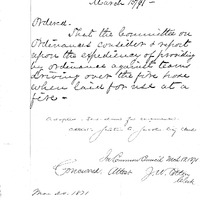 March 12/91
Ordered.
That the Committee on
Ordinances consider & report
upon the expediency of providing
by ordinances against teams
driving over the fire hose
when laid for use at a
fire —
Adopted
In Common Council Mch 12. 1891
Concurred. Attest
Clerk
Mar 20. 1891